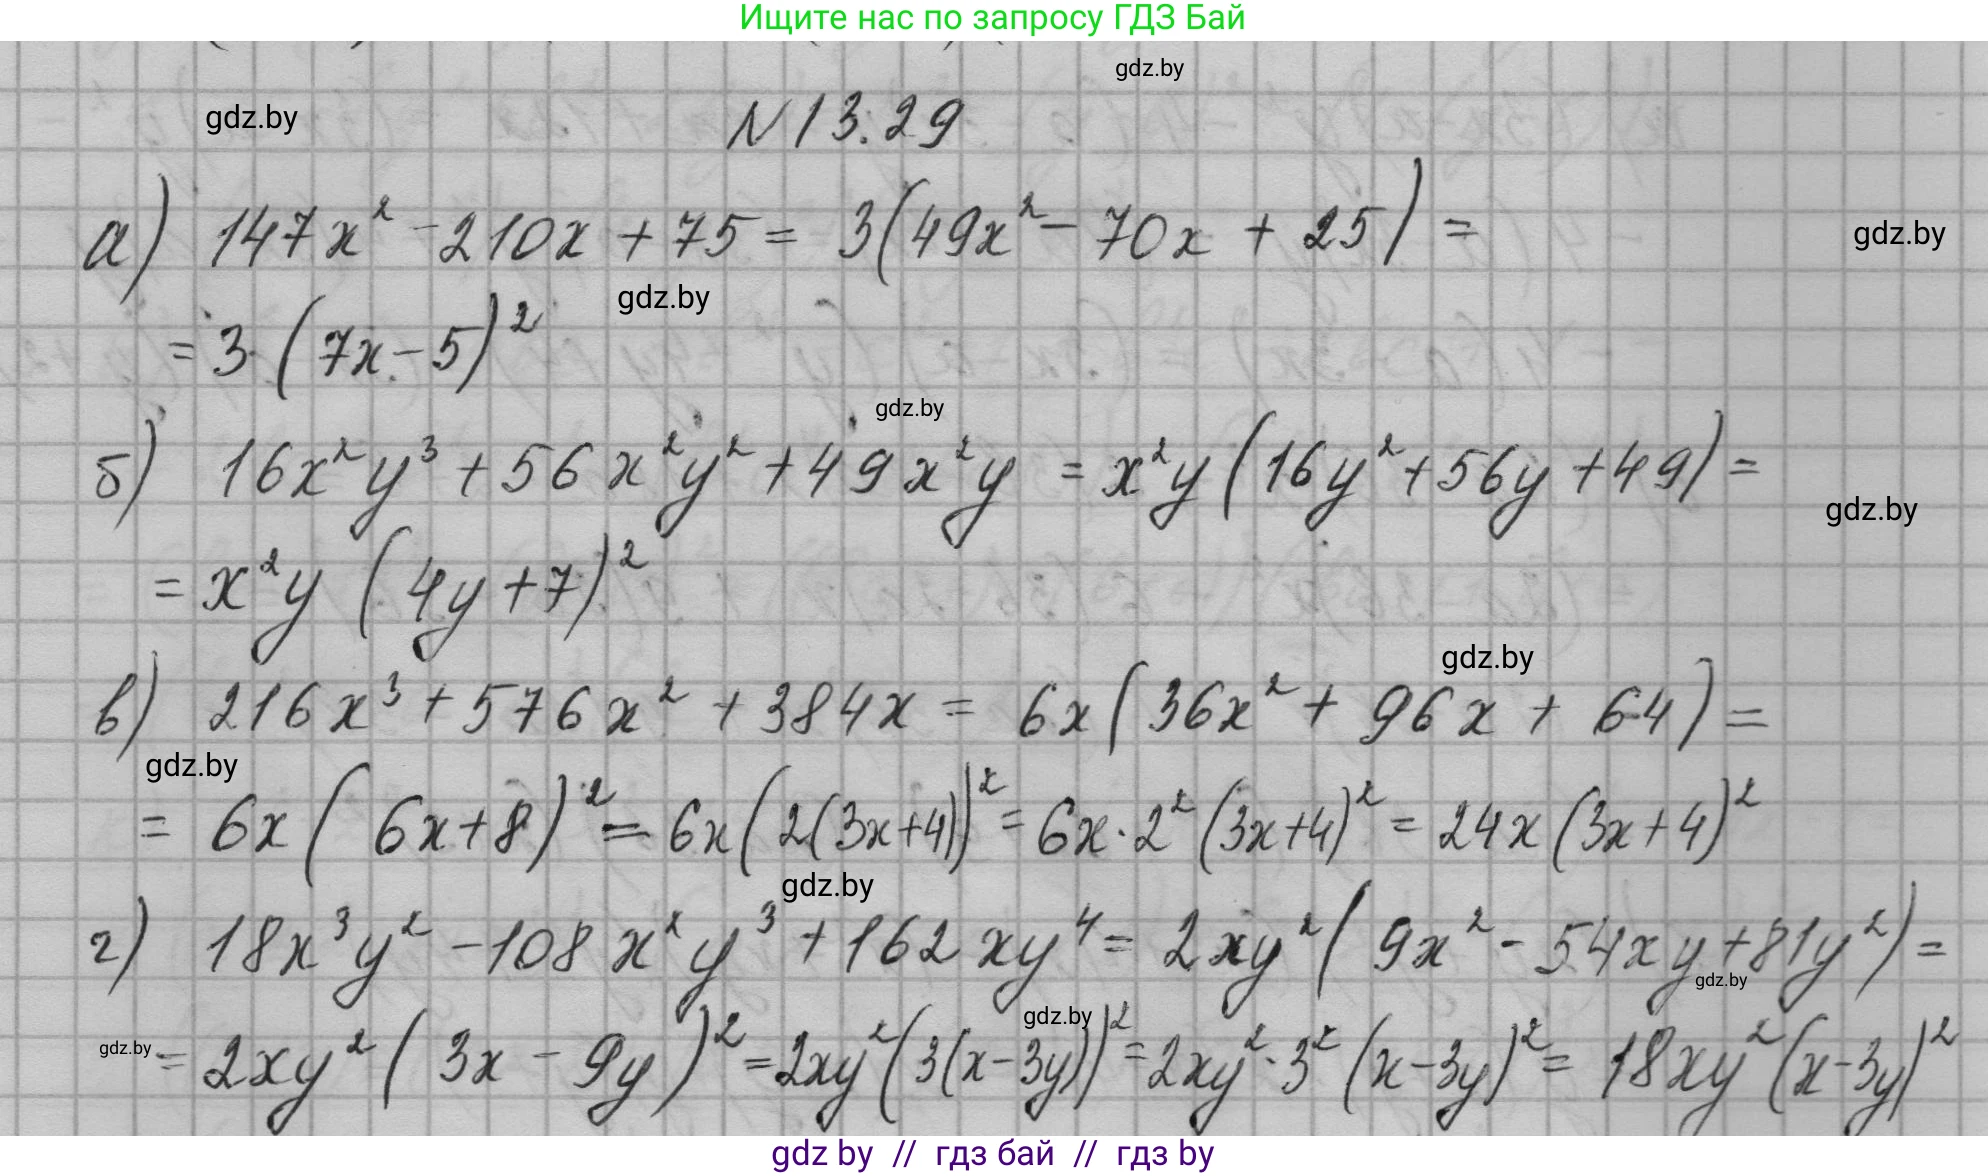 Ищите нас по запросу ГДЗ Бай
gdz.by
gdz.by
N 13.29
а) 147x² - 210x + 75 = 3(49x² - 70x + 25) =
gdz.by
gdz.by
= 3 · (7x - 5)²
gdz.by
б) 16x²y³ + 56x²y² + 49x²y = x²y(16y² + 56y + 49) =
gdz.by
= x²y (4y + 7)²
gdz.by
в) 216x³ + 576x² + 384x = 6x(36x² + 96x + 64) =
gdz.by
= 6x(6x + 8)² = 6x(2(3x + 4))² = 6x · 2² (3x + 4)² = 24x(3x + 4)²
gdz.by
г) 18x³y² - 108x²y³ + 162xy⁴ = 2xy²(9x² - 54xy + 81y²) =
gdz.by
gdz.by
gdz.by
= 2xy²(3x - 9y)² = 2xy²(3(x - 3y))² = 2xy² · 3² (x - 3y)² = 18xy²(x - 3y)²
gdz by // гдз бай // гдз by